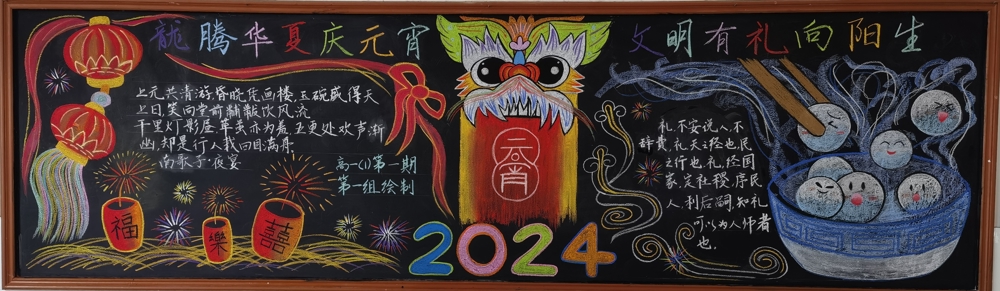 龙腾华夏庆元宵
文明有礼向阳生
上元共清游昏晓凭画楼,玉碗盛得天
上日,笑向堂前翻靛饮风流
千里灯影层苹亦为羞,五更处欢声渐
幽,却是行人我回目,满舟
南歌子·夜宴
高一(1)第一期
第一组绘制
福
樂
囍
元宵
2024
礼,不妄说人,不
辞费,礼,天之经也,民
之行也,礼,经国
家,定社稷,序民
人,利后嗣,知礼
可以为人师者
也。